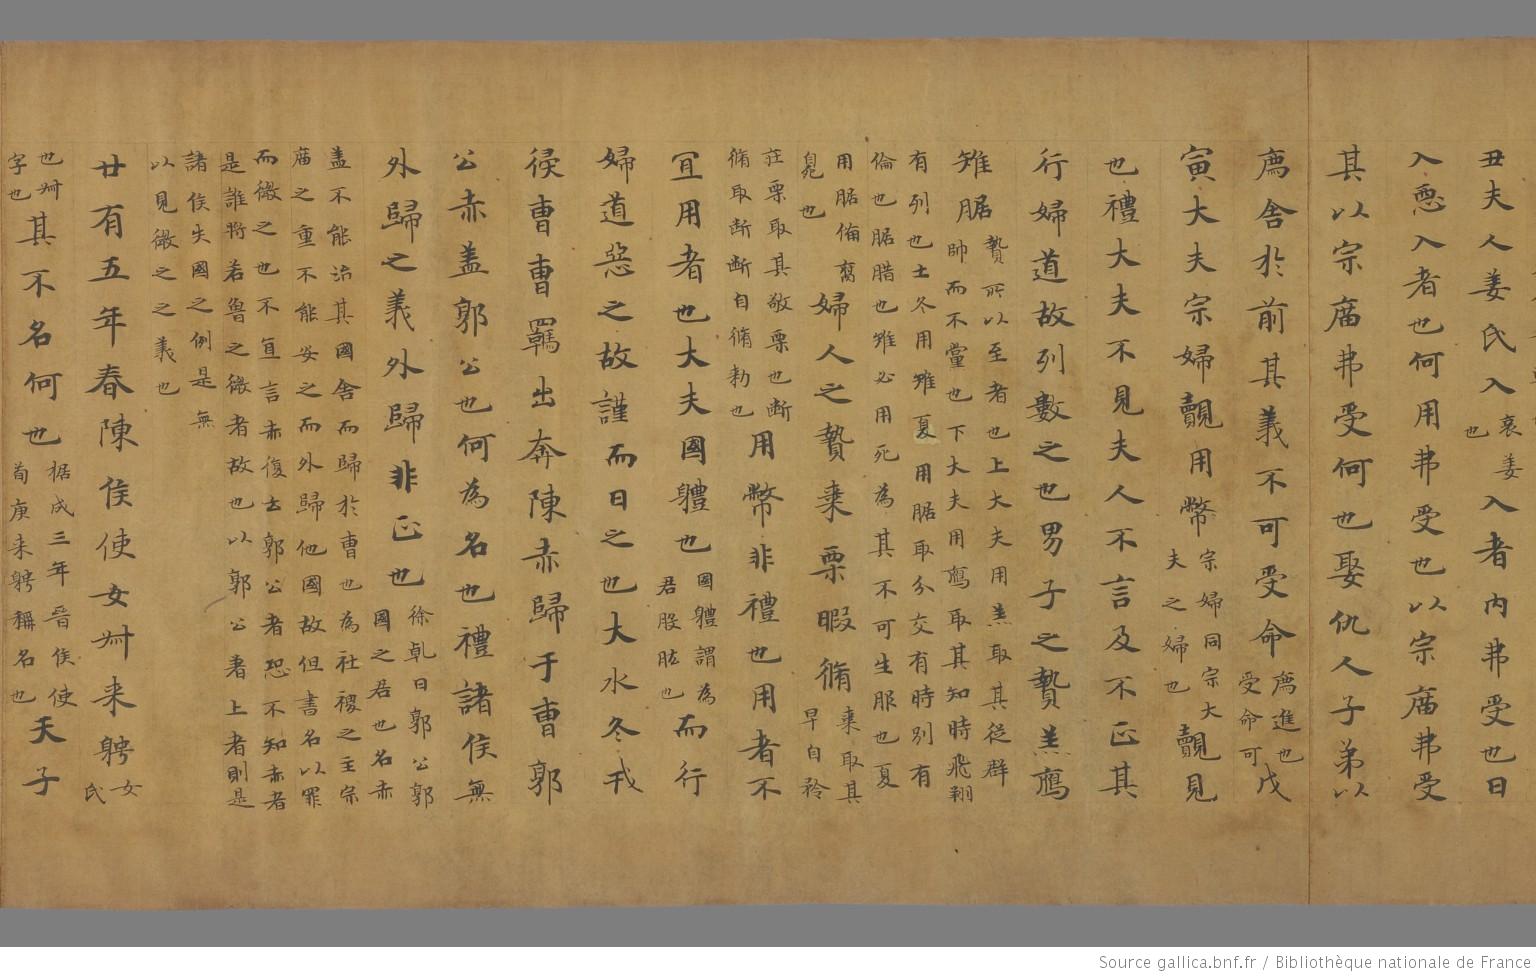 丑夫人姜氏入哀姜也入者內弗受也日
入惡入者也何用弗受也以宗庿弗受
其以宗庿弗受何也娶仇人子弟以
廌舍於前其義不可受命廌進也受命可戊
寅大夫宗婦覿用幣宗婦同宗大夫之婦也覿見
也禮大夫不見夫人不言及不正其
行婦道故列數之也男子之贄羔鴈
雉腒贄所以至者也上大夫用羔取其從群帥而不黨也下大夫用鴈取其知時飛翔
有列也士冬用雉夏用腒取分交有時別有
倫也腒腊也雉必用死為其不可生服也夏
用腒備腐臰也婦人之贄棗栗暇脩棗取其早自矜
莊栗取其敬栗也斷脩取斷斷自脩勑也用幣非禮也用者不
宜用者也大夫國體也國體謂為君股肱也而行
婦道惡之故謹而日之也大水冬戎
侵曹曹羈出奔陳赤歸于曹郭
公赤盖郭公也何為名也禮諸侯無
外歸之義外歸非正也徐乹曰郭公郭國之君也名赤
盖不能治其國舍而歸於曹也為社稷之主宗
庿之重不能安之而外歸他國故但書名以罪
而微之也不直言赤復去郭公者恐不知赤者
是誰將若魯之微者故也以郭公著上者則是
諸侯失國之例是無
以見微之之義也
廿有五年春陳侯使女卌来聘女氏
也卌字也其不名何也据成三年晉侯使荀庚来聘稱名也天子